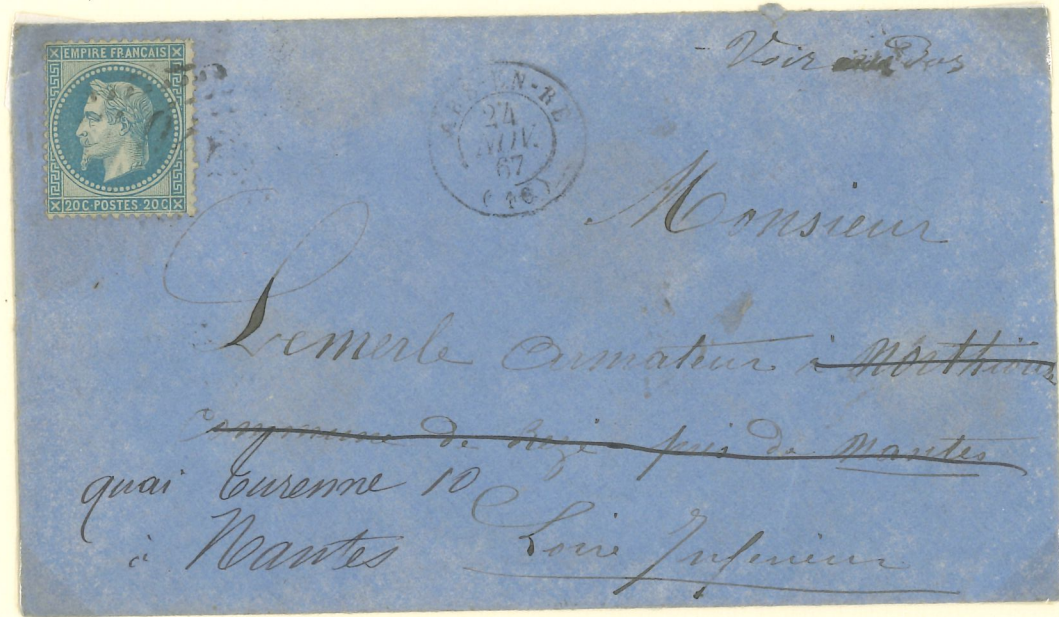 EMPIRE FRANÇAIS
20 C·POSTES 20 C
ARS-EN-RÉ
24
NOV.
67
(16)
Voir au Dos
Monsieur
Lemerle armateur à
Commune de Rezé de Nantes
quai Turenne 10
à Nantes Loire Inferieur